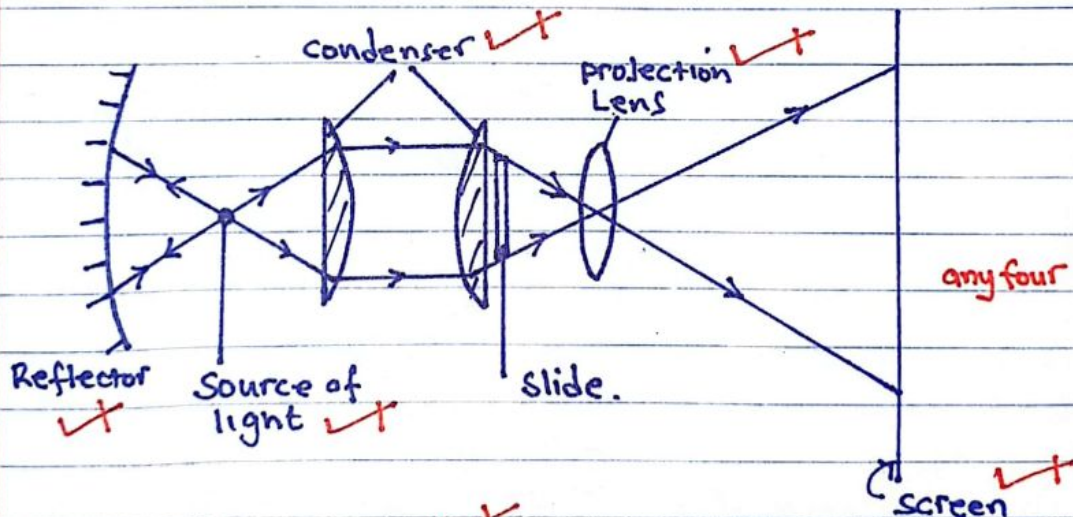 condenser
projection
Lens
any four
Reflector
Source of
light
slide.
screen